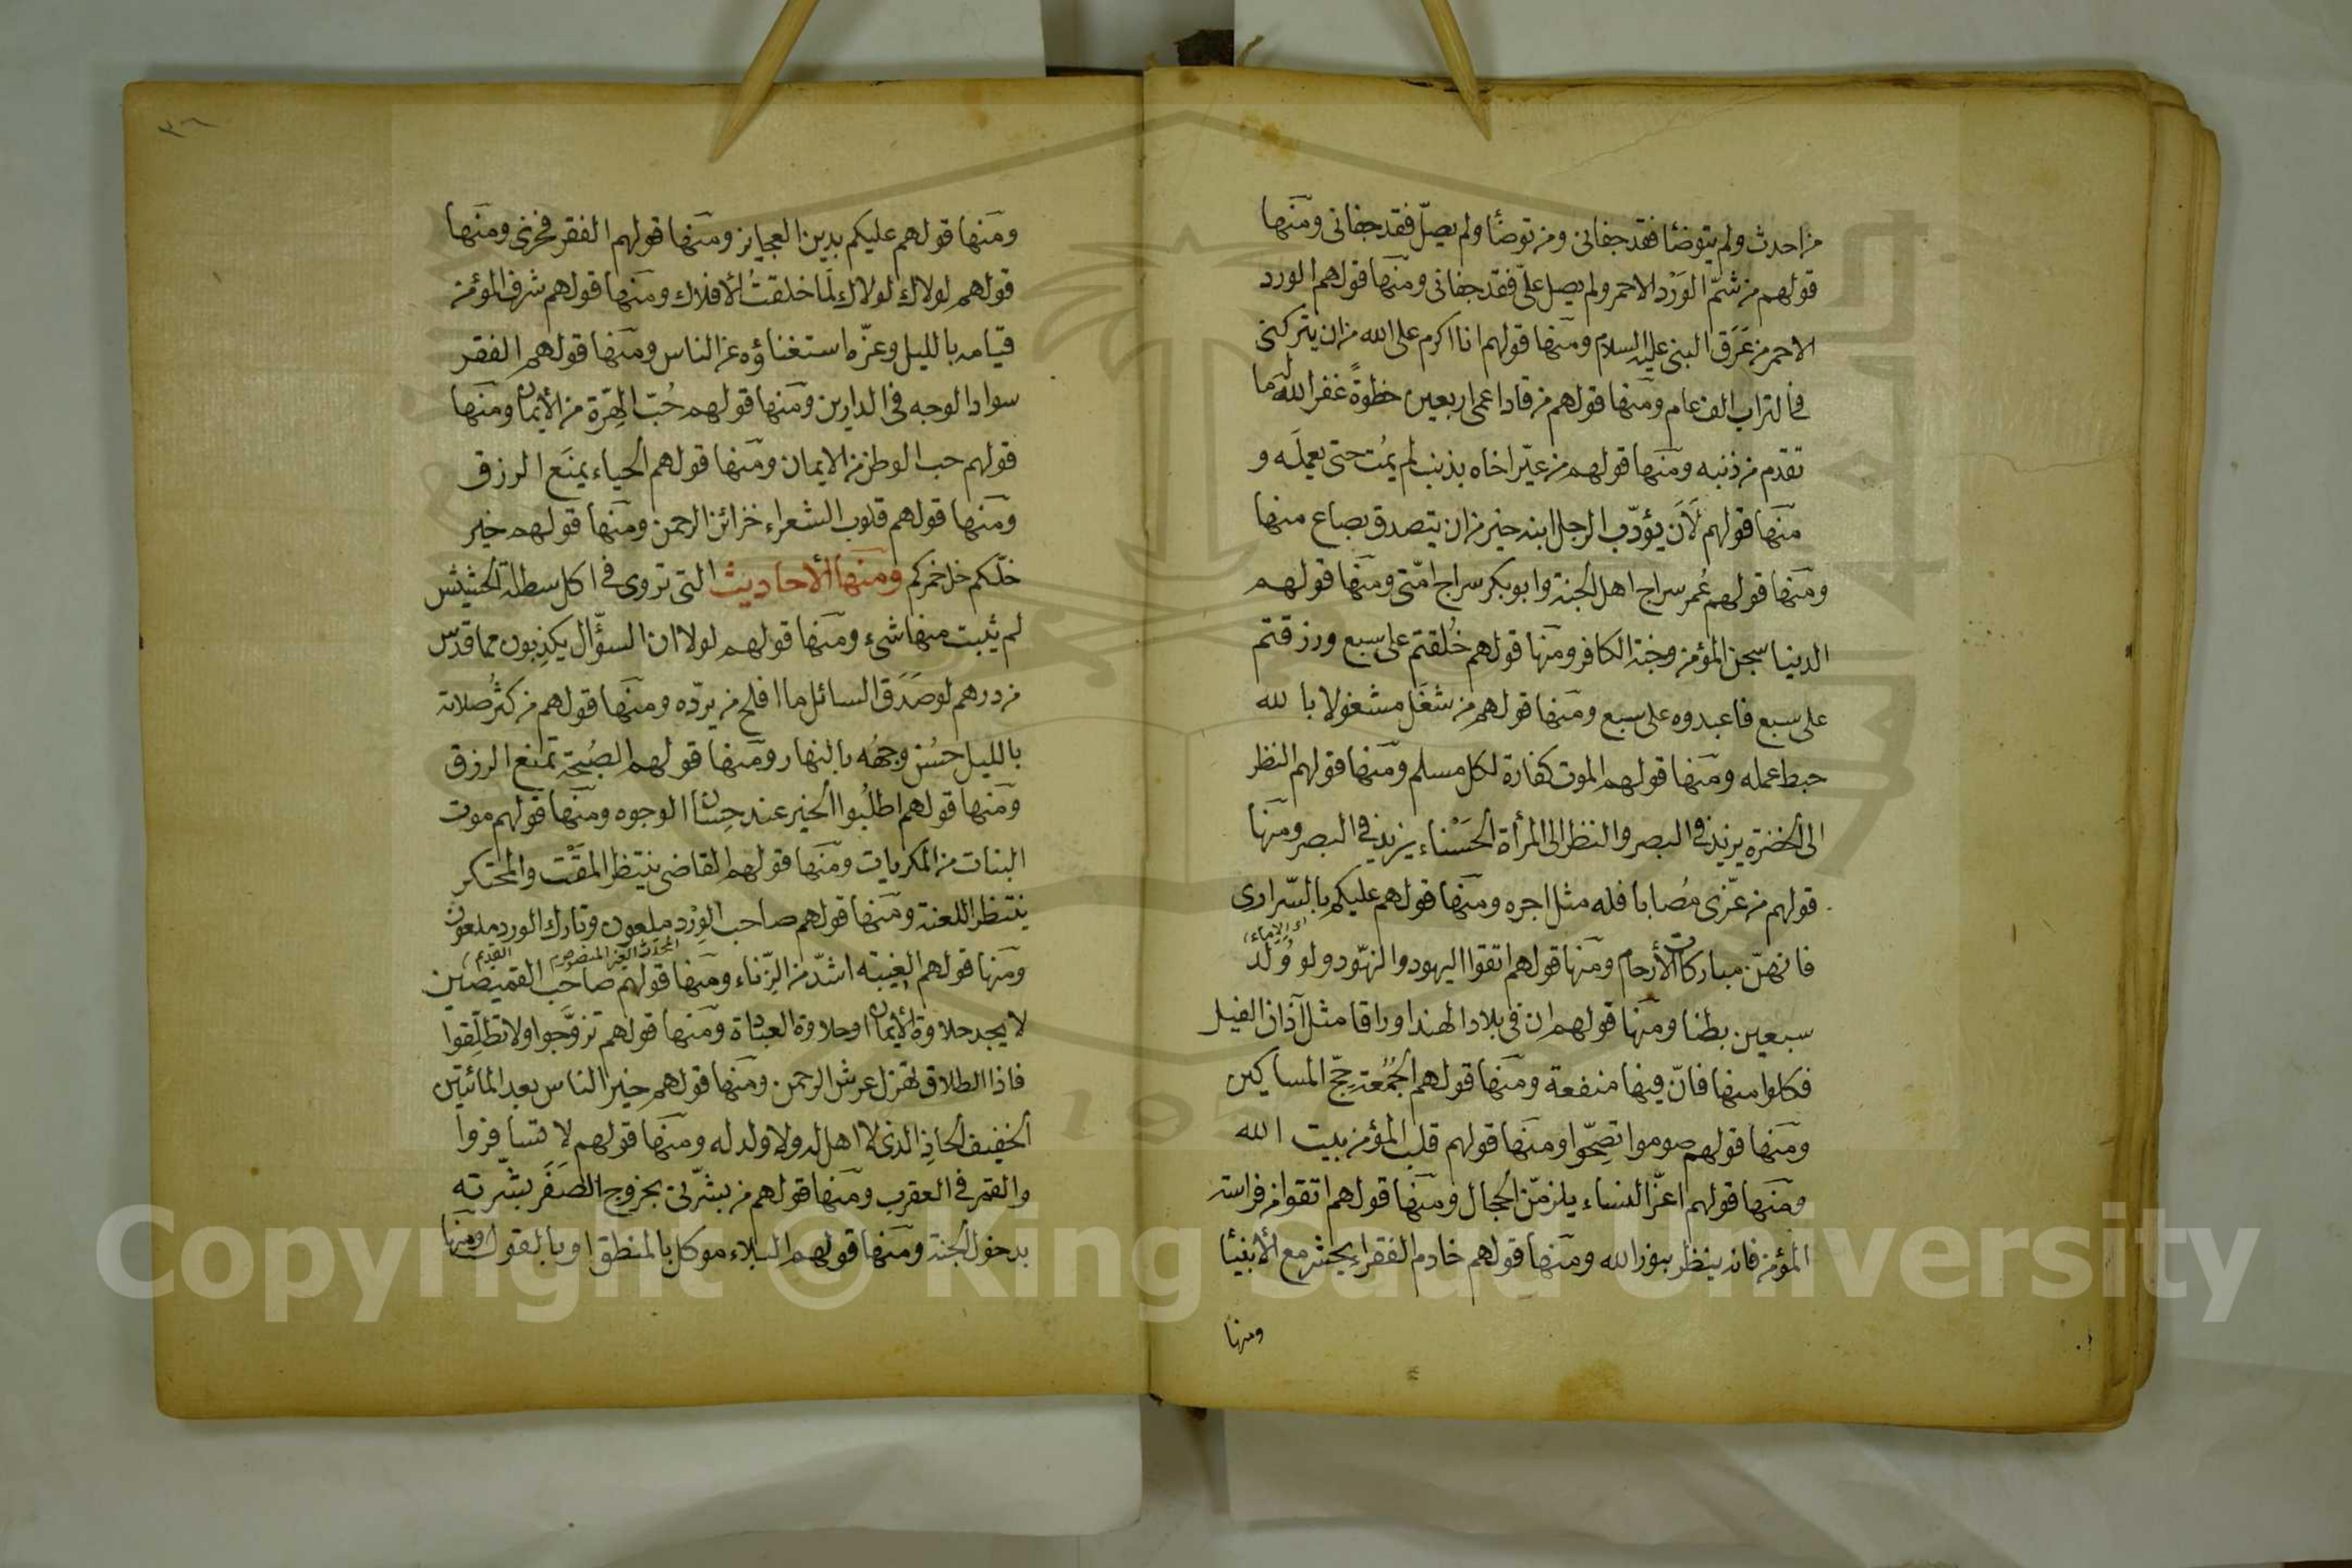 من احدث ولم يتوضأ فقد جفانى ومن توضأ ولم يصلّ فقد جفانى ومنها
قولهم من شمّ الوَرْد الاحمر ولم يصل علىّ فقد جفانى ومنها قولهم الورد
الاحمر من عَرَق النبى عليه السلام ومنها قولهم انا اكرم على الله من ان يتركنى
فى التراب الف عام ومنها قولهم من قاد اعمى اربعين خطوةً غفر الله له ما
تقدم من ذنبه ومنها قولهم من عيّر اخاه بذنب لم يمُت حتى يعملَه و
منها قولهم لَاَن يؤدّب الرجل ابنه خير من ان يتصدق بصاع منها
ومنها قولهم عُمر سراج اهل الجنة وابو بكر سراج امّتى ومنها قولهم
الدنيا سجن المؤمن وجنة الكافر ومنها قولهم خُلقتم على سبع ورزقتم
على سبع فاعبدوه على سبع ومنها قولهم من شغَل مشغولا بالله
حبط عمله ومنها قولهم الموت كفارة لكل مسلم ومنها قولهم النظر
الى الخضرة يزيد فى البصر والنظر الى المرأة الحَسْناء يزيد فى البصر ومنها
قولهم من عزّى مُصابا فله مثل اجره ومنها قولهم عليكم بالسّرارى
اى الإماء
فانهنّ مباركات الأرحام ومنها قولهم اتقوا اليهود والهنود ولو وُلد
سبعين بطنا ومنها قولهم ان فى بلاد الهند اوراقا مثل آذان الفيل
فكلوا منها فانّ فيها منفعة ومنها قولهم الجُمُعة حجّ المساكين
ومنها قولهم صوموا تصِحّوا ومنها قولهم قلب المؤمن بيت الله
ومنها قولهم اعزّ النساء يلزمن الحجال ومنها قولهم اتقوا من فراسة
المؤمن فانه ينظر بنور الله ومنها قولهم خادم الفقراء يحشر مع الأنبيا
ومنها
٣٦
ومنها قولهم عليكم بدين العجايز ومنها قولهم الفقر فخرى ومنها
قولهم لولاك لولاك لَمَا خلقتُ الأفلاك ومنها قولهم شرف المؤمن
قيامه بالليل وعزّه استغناؤه عن الناس ومنها قولهم الفقر
سواد الوجه فى الدارين ومنها قولهم حُبّ الهِرّة من الأيمان ومنها
قولهم حب الوطن من الايمان ومنها قولهم الحياء يمنَع الرزق
ومنها قولهم قلوب الشعراء خزائن الرحمن ومنها قولهم خير
خلّكم خل خمركم ومنها الأحاديث التى تروى فى اكل سطلة الحشيش
لم يثبت منها شىء ومنها قولهم لولا ان السؤّال يكذِبون مما قدّس
من ردهم لو صَدَق السائل ما افلح من يردّه ومنها قولهم من كثُر صلاته
بالليل حسُن وجهُه بالنهار ومنها قولهم الصُبحة تمنع الرزق
ومنها قولهم اطلُبوا الخير عند حِسان الوجوه ومنها قولهم موت
البنات من المكرمات ومنها قولهم القاضى ينتظر المَقْت والمحتكر
ينتظر اللعنة ومنها قولهم صاحب الوِرْد ملعون وتارك الورد ملعون
ومنها قولهم الغيبة اشدّ من الزّناء ومنها قولهم صاحب القميصين
لا يجد حلاوة الأيمان او حلاوة العبادة ومنها قولهم تزوَّجوا ولا تطلِّقوا
فاذا الطلاق تهزل عرش الرحمن ومنها قولهم خير الناس بعد المائتين
الخفيف الحاذِ الذى لا اهل له ولا ولد له ومنها قولهم لا تسافروا
والقمر فى العقرب ومنها قولهم من بشّرنى بخروج الصَفَر بشّرته
بدخول الجنة ومنها قولهم البلاء موكل بالمنطق او بالقول ومنها
Copyright © King Saud University
1957